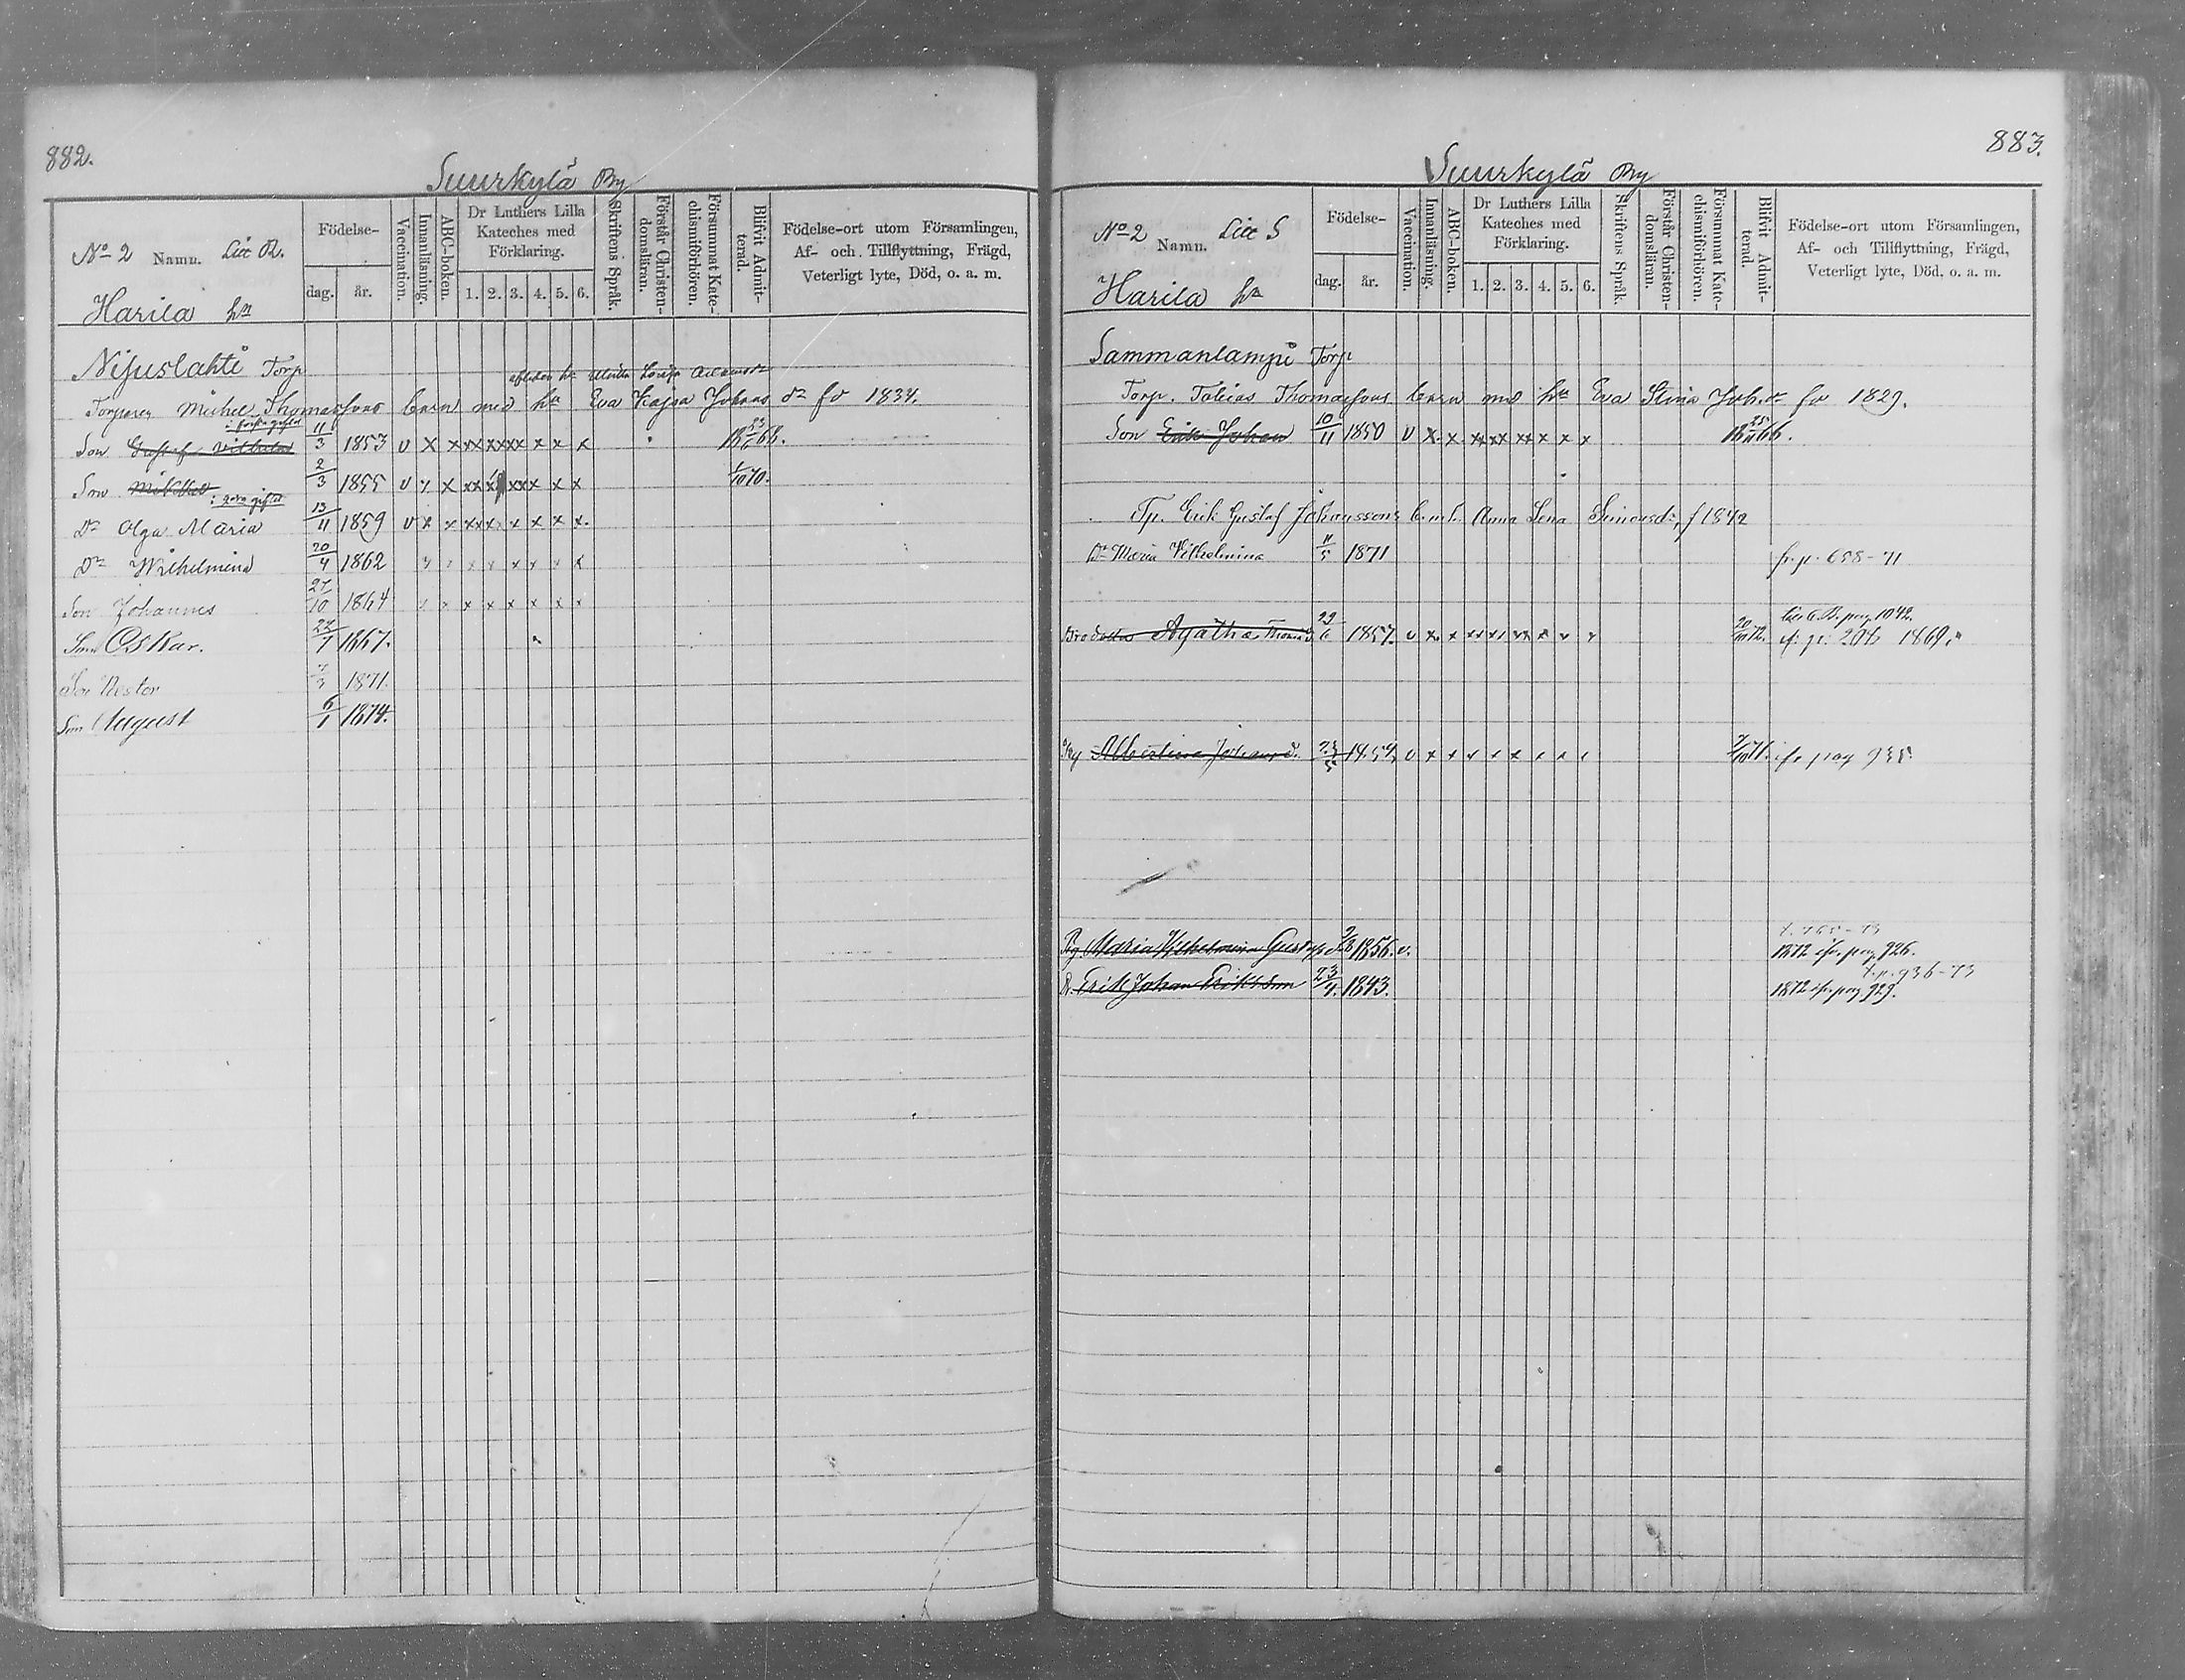 882.
Suurkylä By
No 2 Namn. Litt R.
Harila hn
Födelse-
dag. år.
Vaccination.
Innanläsning.
ABC-boken.
Dr Luthers Lilla Kateches med Förklaring.
1. 2. 3. 4. 5. 6.
Skriftens Språk.
Förstår Christendomsläran.
Försummat Katechismiförhören.
Blifvit Admitterad.
Födelse-ort utom Församlingen,
Af- och Tillflyttning, Frägd,
Veterligt lyte, Död, o. a. m.
Nijuslahti Torp
Torparen Michel Thomassons barn med hu Eva Kajsa Johans dr fö 1834.
Son Gustaf Vilhelm 11/3 1853 v x x xx xx xx x x x
Son Mikkel 2/3 1855 v x x xx x xx x x x 70.
Dr Olga Maria 13/11 1859 v x x xx x x x x x.
Dr Wilhelmina 20/4 1862 x x x x x x x x
Son Johannes 27/10 1864 x x x x x x x x
Son Oskar. 22/1 1867.
Son Nestor 7/3 1871.
Son August 6/1 1874.
883.
Suurkylä By
No 2 Namn. Litt S
Harila hn
Födelse-
dag. år.
Vaccination.
Innanläsning.
ABC-boken.
Dr Luthers Lilla Kateches med Förklaring.
1. 2. 3. 4. 5. 6.
Skriftens Språk.
Förstår Christendomsläran.
Försummat Katechismiförhören.
Blifvit Admitterad.
Födelse-ort utom Församlingen,
Af- och Tillflyttning, Frägd,
Veterligt lyte, Död, o. a. m.
Sammanlampi Torp
Torp. Tobias Thomassons barn med hu Eva Stina Joh. dr fö 1829.
Son Erik Johan 10/11 1850 v x x xx xx xx x x x
Tp. Erik Gustaf Johanssons b. m. h. Anna Lena Simonsdr, f 1842
Dr Maria Vilhelmina 11/5 1871 fr. p. 658-71
Agatha Thomasd 29/6 1857. v x x xx x xx x x x pag 1042.
1869.
Albertina Johansd. 23/5 1854 v x x x x x x x x pag 935.
Pig Maria Vilhelmina Gustafsd 9/3 1856. v. 1872 ifr. pag 926.
t. p. 936-73
Dr. Erik Johan Eriksson 23/4. 1843. 1872 ifr. pag 929.